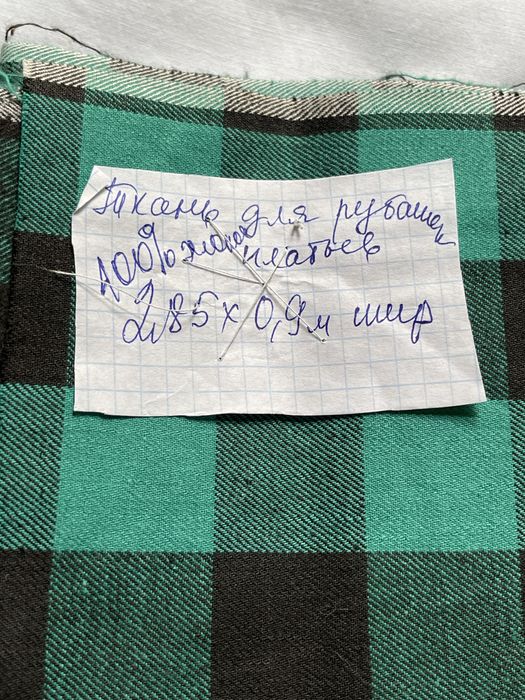 Ткань для рубашек
100% хлопок платьев
2,85 х 0,9 м шир